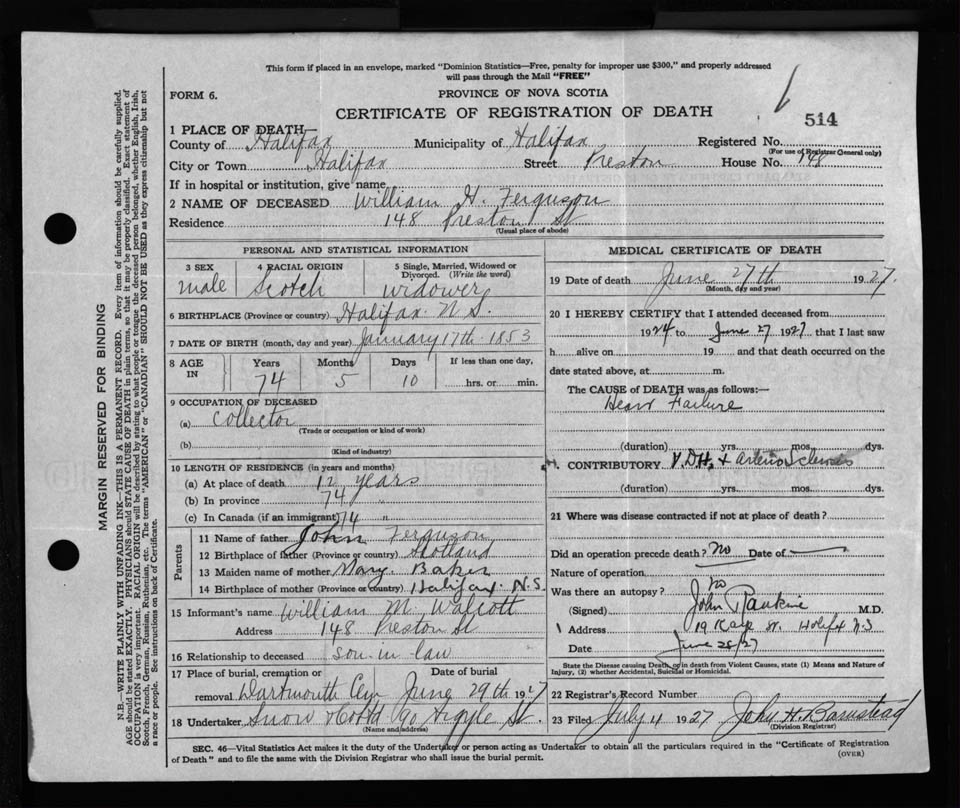 This form if placed in an envelope, marked "Dominion Statistics—Free, penalty for improper use $300," and properly addressed
will pass through the Mail "FREE"
FORM 6.
PROVINCE OF NOVA SCOTIA
CERTIFICATE OF REGISTRATION OF DEATH
514
1 PLACE OF DEATH
County of Halifax Municipality of Halifax Registered No.
(For use of Registrar General only)
City or Town Halifax Street Preston House No. 148
If in hospital or institution, give name
2 NAME OF DECEASED William H. Ferguson
Residence 148 Preston St
(Usual place of abode)
PERSONAL AND STATISTICAL INFORMATION
3 SEX male
4 RACIAL ORIGIN Scotch
5 Single, Married, Widowed or Divorced. (Write the word) widower
6 BIRTHPLACE (Province or country) Halifax N.S.
7 DATE OF BIRTH (month, day and year) January 17th 1853
8 AGE IN Years 74 Months 5 Days 10 If less than one day, hrs. or min.
9 OCCUPATION OF DECEASED
(a) Collector
(Trade or occupation or kind of work)
(b)
(Kind of industry)
10 LENGTH OF RESIDENCE (in years and months)
(a) At place of death 12 years
(b) In province 74 "
(c) In Canada (if an immigrant) 74 "
Parents
11 Name of father John Ferguson
12 Birthplace of father (Province or country) Scotland
13 Maiden name of mother Mary Baker
14 Birthplace of mother (Province or country) Halifax N.S.
15 Informant's name William M. Walcott
Address 148 Preston St
16 Relationship to deceased son-in-law
17 Place of burial, cremation or removal Dartmouth Cem Date of burial June 29th 1927
18 Undertaker Snow & Co Ltd 90 Argyle St.
(Name and address)
MEDICAL CERTIFICATE OF DEATH
19 Date of death June 27th 1927.
(Month, day and year)
20 I HEREBY CERTIFY that I attended deceased from
1924 to June 27 1927 that I last saw
h alive on 19 and that death occurred on the
date stated above, at m.
The CAUSE of DEATH was as follows:—
Heart Failure
(duration) yrs. mos. dys.
CONTRIBUTORY V.D.H. + Arterio Sclerosis
(duration) yrs. mos. dys.
21 Where was disease contracted if not at place of death?
Did an operation precede death? No Date of
Nature of operation
Was there an autopsy? no
(Signed) John Rankine M.D.
Address St. Halifax N S
Date June 28/27
State the Disease causing Death, or in death from Violent Causes, state (1) Means and Nature of
Injury, (2) whether Accidental, Suicidal or Homicidal.
22 Registrar's Record Number
23 Filed July 4 1927 John H. Barnstead
(Division Registrar)
SEC. 46—Vital Statistics Act makes it the duty of the Undertaker or person acting as Undertaker to obtain all the particulars required in the "Certificate of Registration
of Death" and to file the same with the Division Registrar who shall issue the burial permit.
(OVER)
MARGIN RESERVED FOR BINDING
N.B.—WRITE PLAINLY WITH UNFADING INK—THIS IS A PERMANENT RECORD. Every item of information should be carefully supplied.
AGE should be stated EXACTLY. PHYSICIANS should STATE CAUSE OF DEATH in plain terms, so that it may be properly classified. Exact statement of
OCCUPATION is very important. RACIAL ORIGIN will be described by stating to what people or tongue the deceased person belonged, whether English, Irish,
Scotch, French, German, Russian, Ruthenian, etc. The terms "AMERICAN" or "CANADIAN" SHOULD NOT BE USED as they express citizenship but not
a race or people. See instructions on back of Certificate.